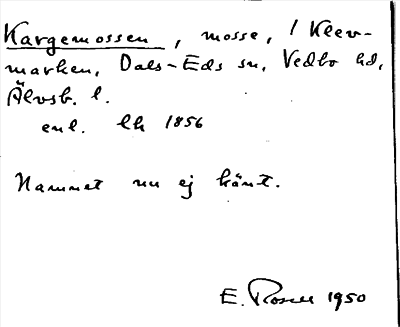 Kargemossen, mosse, i Klev-
marken, Dals-Eds sn, Vedbo hd,
Älvsb. l.
enl. lk 1856
Namnet nu ej känt.
E. Rosell 1950